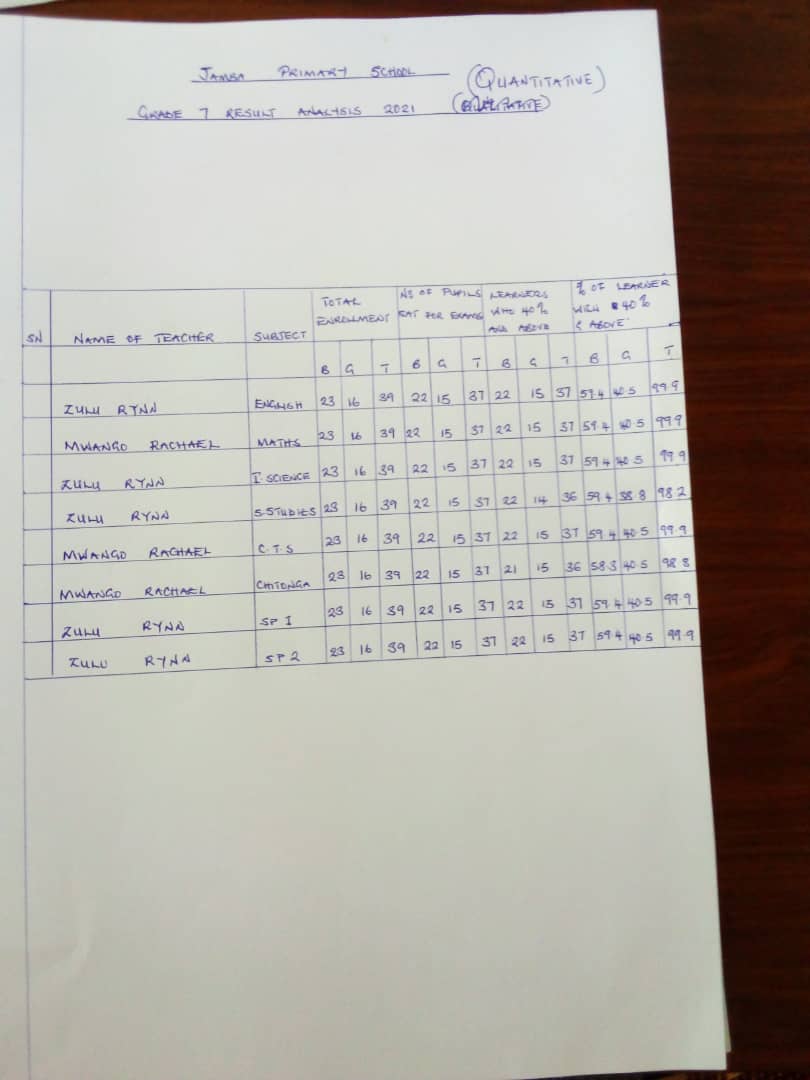 JAMBA PRIMARY SCHOOL (QUANTITATIVE)
GRADE 7 RESULT ANALYSIS 2021
SN NAME OF TEACHER SUBJECT TOTAL ENROLLMENT NS OF PUPILS SAT FOR EXAMS LEARNERS WHO 40% AND ABOVE % OF LEARNER WITH 40% & ABOVE
B G T B G T B G T B G T
ZULU RYNN ENGLISH 23 16 39 22 15 37 22 15 37 59.4 40.5 99.9
MWANGO RACHAEL MATHS 23 16 39 22 15 37 22 15 37 59.4 40.5 99.9
ZULU RYNN I.SCIENCE 23 16 39 22 15 37 22 15 37 59.4 40.5 99.9
ZULU RYNN S.STUDIES 23 16 39 22 15 37 22 14 36 59.4 38.8 98.2
MWANGO RACHAEL C.T.S 23 16 39 22 15 37 22 15 37 59.4 40.5 99.9
MWANGO RACHAEL CHITONGA 23 16 39 22 15 37 21 15 36 58.3 40.5 98.8
ZULU RYNN SP 1 23 16 39 22 15 37 22 15 37 59.4 40.5 99.9
ZULU RYNN SP 2 23 16 39 22 15 37 22 15 37 59.4 40.5 99.9